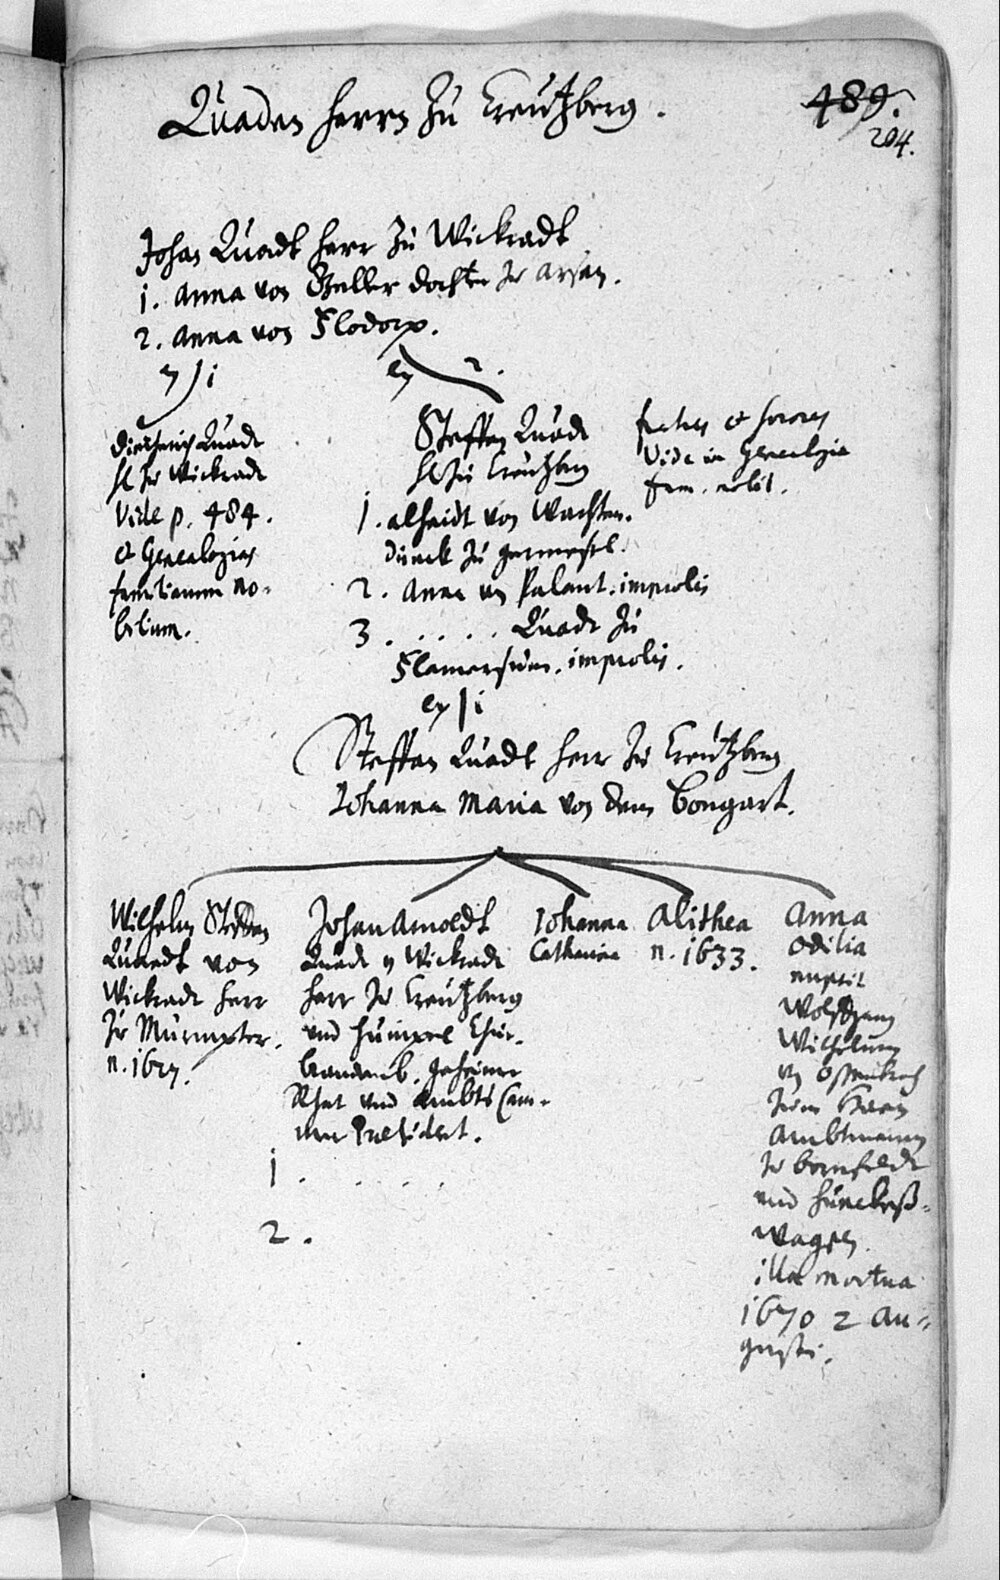 Quaden herrn zu Creutzberg.
489.
204.
Johan Quadt herr zu Wickradt
1. Anna von Geller dochter zu Arsen.
2. Anna von Flodorp.
ex 1
ex 2.
Diethrich Quadt
H. zu Wickradt
Vide p. 484.
et Genealogias
familiarum no-
bilium.
Steffen Quadt
H. zu Creutzberg
1. Alheidt von Wachten-
dunck zu Germesel.
2. Anna von Palant. improlis
3. . . . . . Quadt zu
Flamersheim. improlis.
fratres et sorores
Vide in Genealogia
fam. nobil.
ex 1
Steffan Quadt herr zu Creutzberg
Johanna Maria von dem Bongart.
Wilhelm Steffen
Quaedt von
Wickradt herr
zu
n. 1627.
Johan Arnoldt
Quadt v Wickradt
herr zu Creutzberg
und Chur-
brandenb. Geheimer
Rhat und Ambts Cam-
mer President.
1. . . . . .
2.
Johanna
Catharina
Alithea
n. 1633.
Anna
Odilia
nupsit
Wolffgang
Wilhelm
v
zum Haan
Ambtmann
zu Bornfeldt
und Hückeß-
wagen.
illa mortua
1670 2 Au-
gusti.